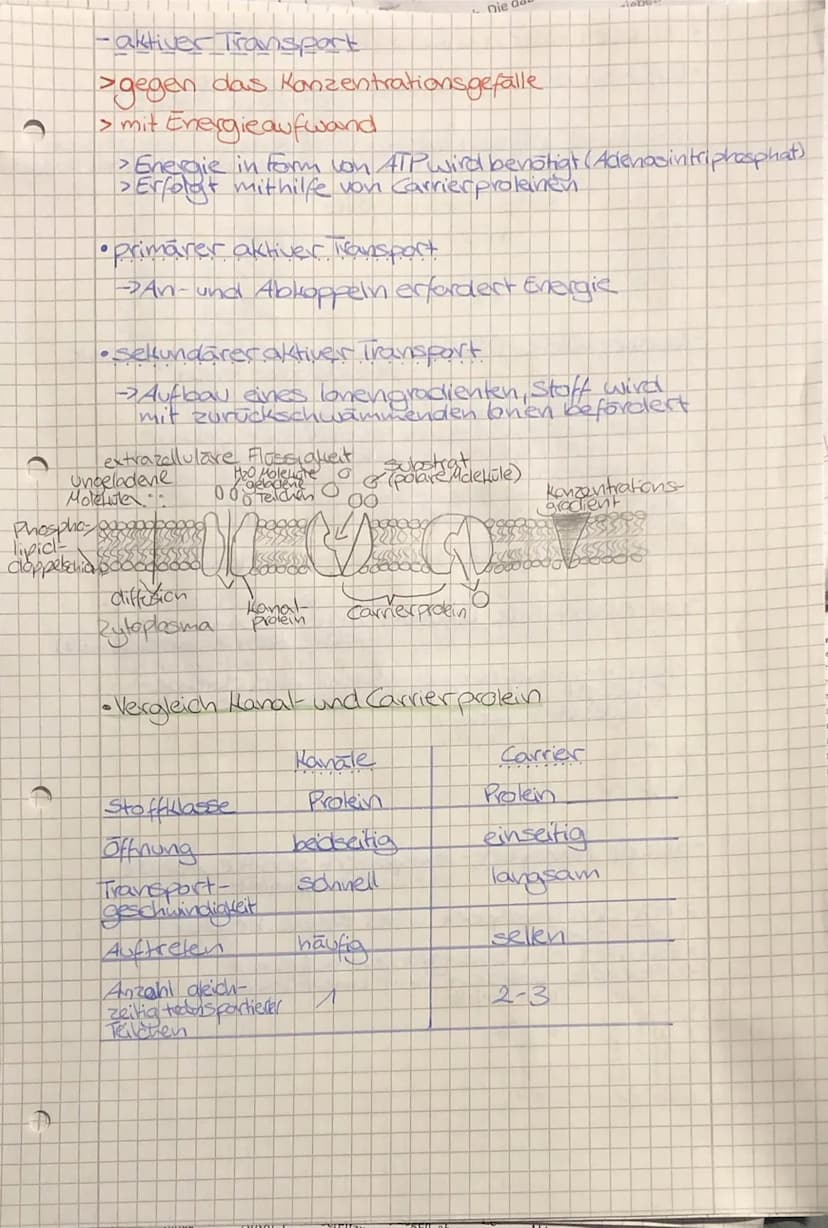 nie
- aktiver Transport
> gegen das Konzentrationsgefälle
> mit Energieaufwand
> Energie in Form von ATP wird benötigt (Adenosintriphosphat)
> Erfolgt mithilfe von Carrierproteinen
• primärer aktiver Transport
→ An- und Abkoppeln erfordert Energie
• sekundärer aktiver Transport
→ Aufbau eines Ionengradienten, Stoff wird
mit zurückschwämmenden Ionen befördert
extrazelluläre Flüssigkeit
ungeladene
Moleküle
H₂O Moleküle
geladene
Teilchen
Substrat
(polare Moleküle)
Konzentrations-
gradient
Phospho-
lipid-
doppelschicht
diffusion
Kanal-
protein
Carrierprotein
Zytoplasma
• Vergleich Kanal- und Carrierprotein
Kanäle Carrier
Stoffklasse Protein Protein
Öffnung beidseitig einseitig
Transport- schnell langsam
geschwindigkeit
Auftreten häufig selten
Anzahl gleich-
zeitig transportierter 1 2-3
Teilchen